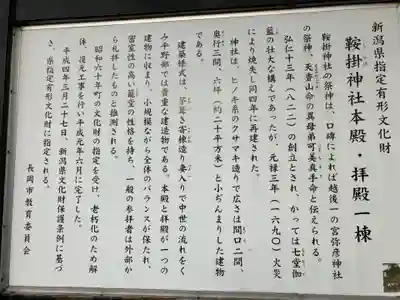 新潟県指定有形文化財
鞍掛神社本殿・拝殿一棟
鞍掛神社の祭神は、口碑によれば越後一の宮弥彦神社
の祭神、天香山命の異母弟可美真手命と伝えられる。
弘仁十三年（八二二）の創立とされ、かつては七堂伽
藍の壮大な構えであったが、元禄三年（一六九〇）火災
により焼失し同四年に再建された。
神社は、ヒノキ系のクサマキ造りで広さは間口二間、
奥行三間、六坪（約二十平方米）と小ぢんまりした建物
である。
建築様式は、茅葺き寄棟造り妻入りで中世の流れをく
み平野部では貴重な建造物である。本殿と拝殿が一つの
建物に収まり、小規模ながら全体のバランスが保たれ、
密室性の高い籠堂の性格を持ち、一般の参拝者は外部か
ら礼拝したものと推測される。
昭和六十年町の文化財の指定を受け、老朽化のため解
体、復元工事を行い平成元年六月に完了した。
平成四年三月二十七日、新潟県文化財保護条例に基づ
き、県指定有形文化財に指定される。
長岡市教育委員会